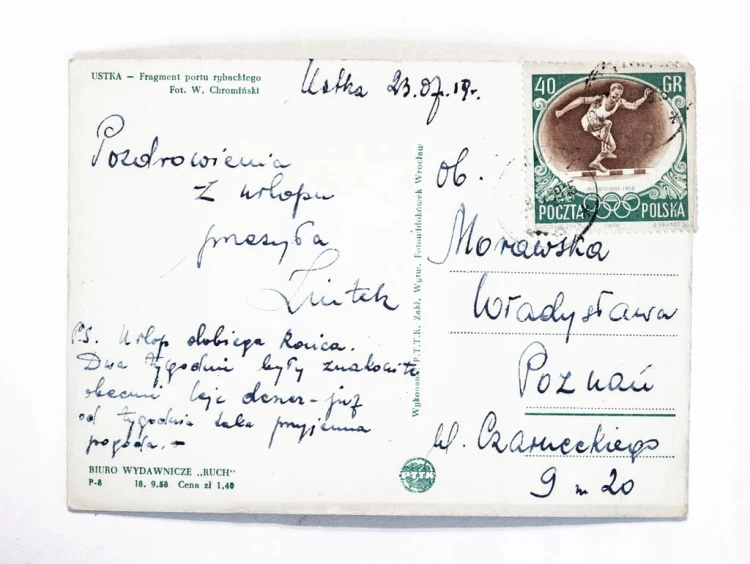 USTKA – Fragment portu rybackiego
Fot. W. Chromiński
Ustka 23.07.19r.
Pozdrowienia
z urlopu
przesyła
P.S. Urlop dobiega końca.
Dwa tygodnie były znakomite
obecnie leje deszcz – już
od tygodnia taka przyjemna
pogoda. –
BIURO WYDAWNICZE „RUCH"
P-8 18. 9.58 Cena zł 1,40
Wykonano P.T.T.K. Zakł. Wytw. Fotowidokówek Wrocław
40 GR
MELBOURNE 1956
POCZTA POLSKA
ob.
Morawska
Władysława
Poznań
ul. Czarneckiego
9 m 20